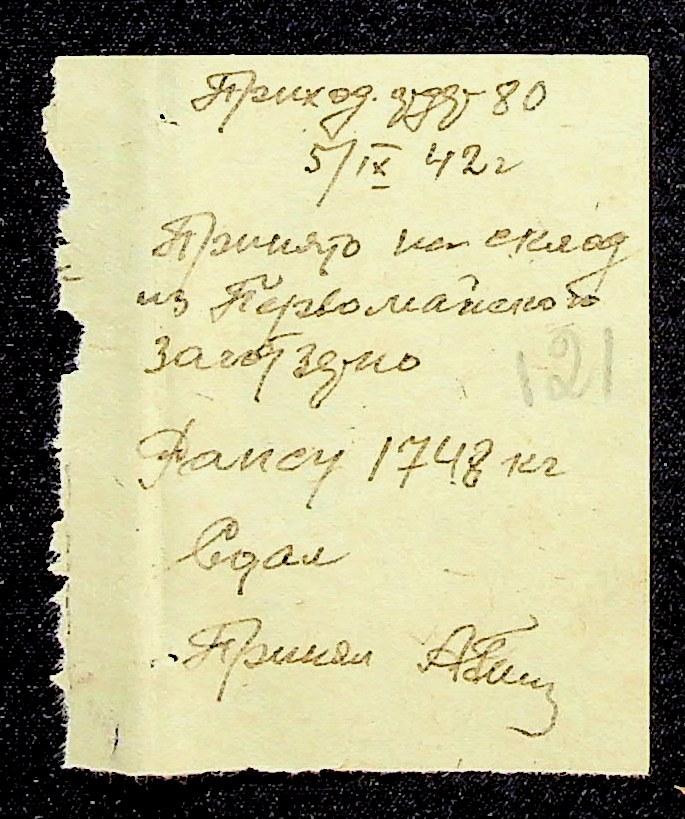 Приход. 80
5/IX 42 г
Принято на склад
из Первомайского
заготзерно
121
Рапсу 1748 кг
Сдал
Принял